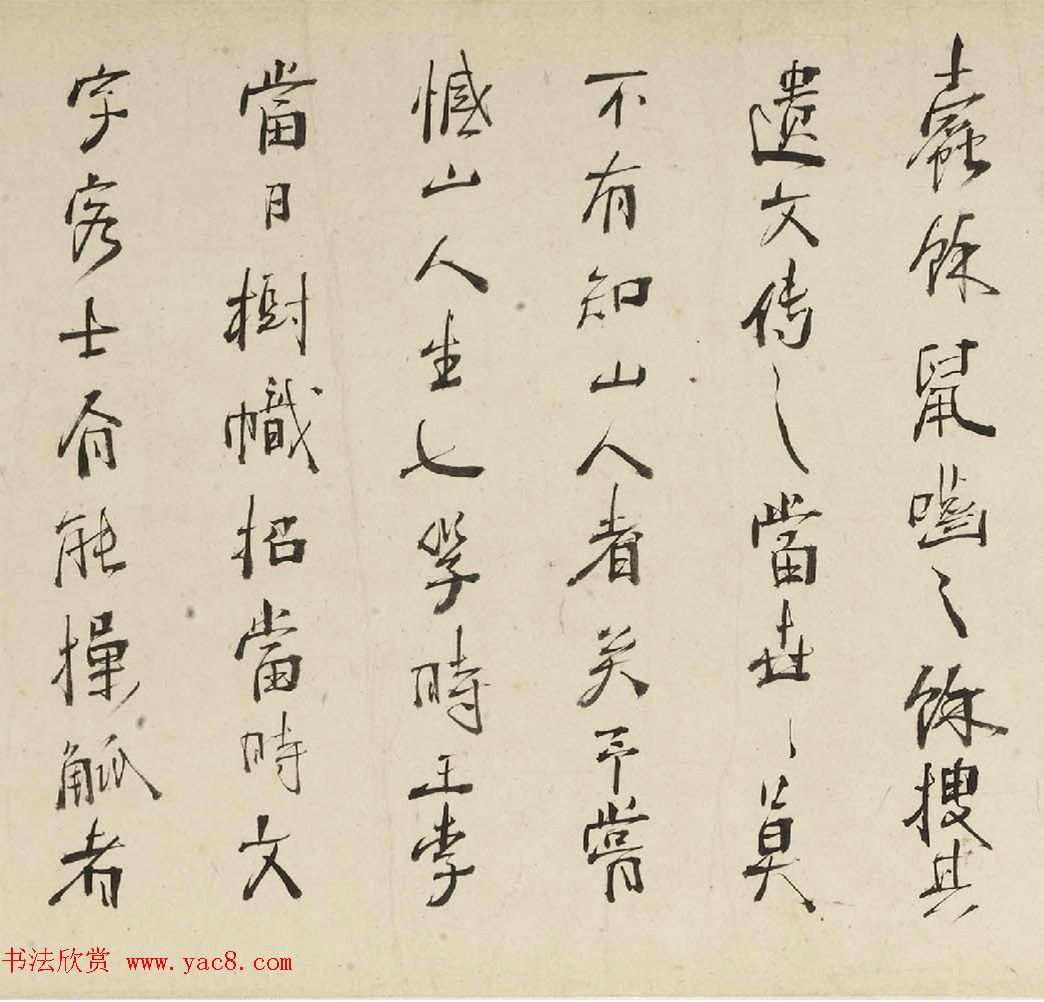 蠹餘鼠嚙之餘搜其
遺文傳之當世々莫
不有知山人者矣予嘗
憾山人生也學時王李
當日樹幟招當時文
字客士有能操觚者
书法欣赏 www.yac8.com